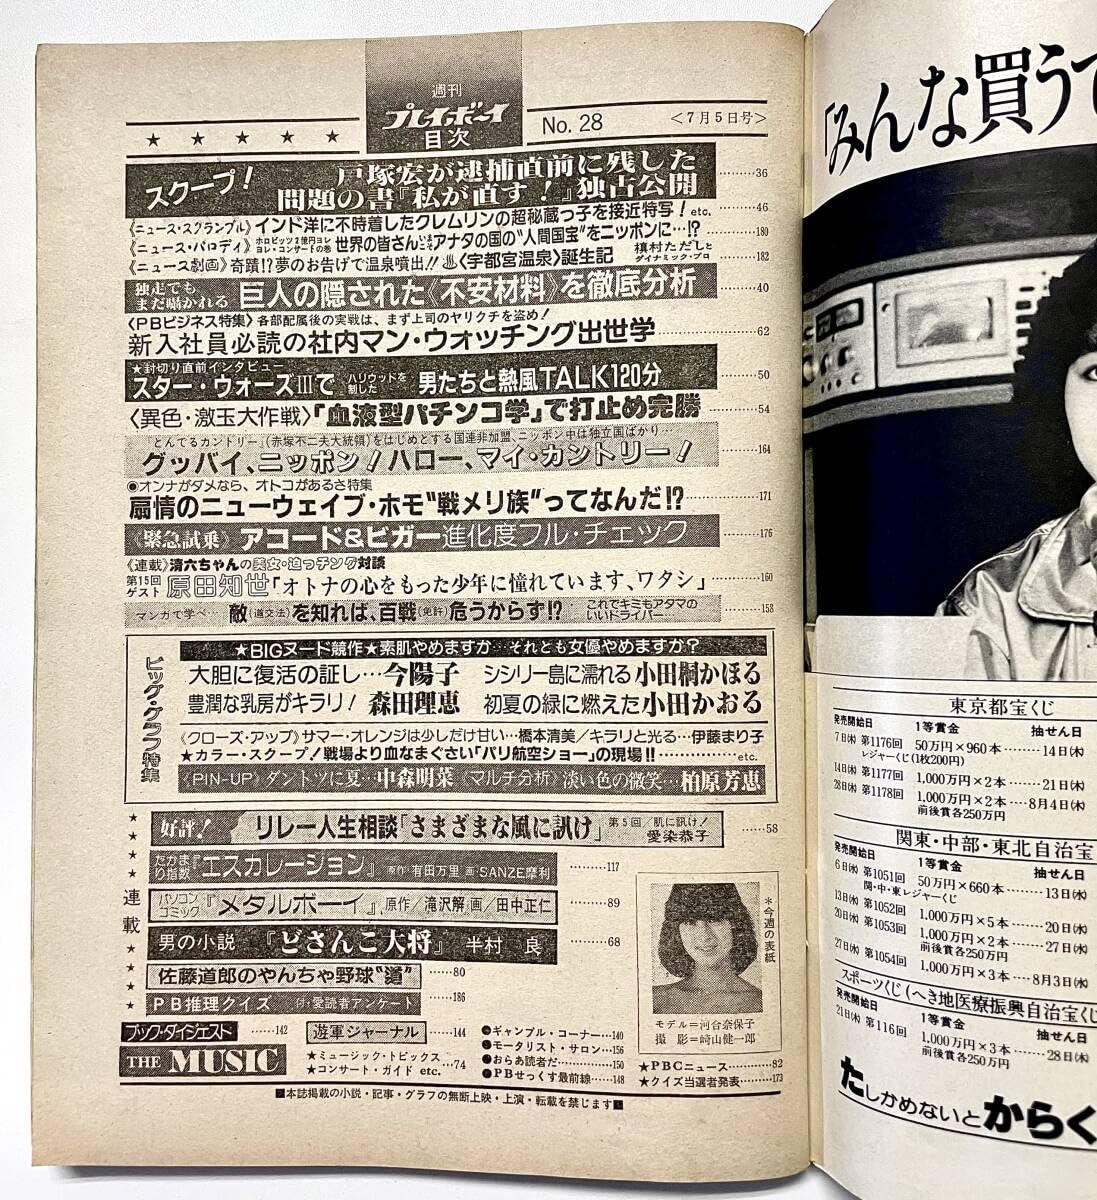 週刊
プレイボーイ
目次
No. 28
＜7月5日号＞
★ ★ ★ ★ ★
スクープ！
戸塚宏が逮捕直前に残した
問題の書『私が直す！』独占公開 ………36
《ニュース・スクランブル》インド洋に不時着したクレムリンの超秘蔵っ子を接近特写！etc. ………46
《ニュース・パロディ》ホロビッツ2億円ヨレヨレ・コンサートの巻 世界の皆さん アナタの国の“人間国宝”をニッポンに…!? ………180
《ニュース劇画》奇蹟!?夢のお告げで温泉噴出!!♨〈宇都宮温泉〉誕生記 槇村ただしとダイナミック・プロ ………182
独走でもまだ囁かれる 巨人の隠された《不安材料》を徹底分析 ………40
〈PBビジネス特集〉各部配属後の実戦は、まず上司のヤリクチを盗め！
新入社員必読の社内マン・ウォッチング出世学 ………62
★封切り直前インタビュー
スター・ウォーズIIIで ハリウッドを制した 男たちと熱風TALK120分 ………50
〈異色・激玉大作戦〉「血液型パチンコ学」で打止め完勝 ………54
“とんでるカントリー”(赤塚不二夫大統領)をはじめとする国連非加盟、ニッポン中は独立国ばかり…
グッバイ、ニッポン！ハロー、マイ・カントリー！ ………164
●オンナがダメなら、オトコがあるさ特集
扇情のニューウェイブ・ホモ“戦メリ族”ってなんだ!? ………171
《緊急試乗》アコード&ビガー進化度フル・チェック ………176
《連載》清六ちゃんの美女・迫っチング対談
第15回ゲスト 原田知世「オトナの心をもった少年に憧れています、ワタシ」 ………160
マンガで学べ… 敵(道交法)を知れば、百戦(免許)危うからず!? これでキミもアタマのいいドライバー… ………158
ビッグ・グラフ特集
★BIGヌード競作★素肌やめますか…それとも女優やめますか？
大胆に復活の証し…今陽子
シシリー島に濡れる 小田桐かほる
豊潤な乳房がキラリ！ 森田理恵
初夏の緑に燃えた 小田かおる
《クローズ・アップ》サマー・オレンジは少しだけ甘い…橋本清美／キラリと光る…伊藤まり子
★カラー・スクープ！戦場より血なまぐさい「パリ航空ショー」の現場!!………etc.
《PIN-UP》ダントツに夏…中森明菜 〈マルチ分析〉淡い色の微笑…柏原芳恵
★★★連載★★★
好評！ リレー人生相談「さまざまな風に訊け」第5回／肌に訊け！ 愛染恭子 ……58
たかまり指数『エスカレーション』 原作・有田万里 画・SANZE摩利 ………117
パソコンコミック『メタルボーイ』 原作／滝沢解 画／田中正仁 ………89
男の小説 『どさんこ大将』 半村 良 ………68
佐藤道郎のやんちゃ野球“道” ……80
PB推理クイズ 付・愛読者アンケート ……186
ブック・ダイジェスト ……142
遊軍ジャーナル ……144
THE MUSIC
★ミュージック・トピックス
★コンサート・ガイド etc. …74
●ギャンブル・コーナー…140
●モータリスト・サロン…156
●おらあ読者だ…………150
●PBせっくす最前線……148
＊今週の表紙
モデル＝河合奈保子
撮 影＝崎山健一郎
★PBCニュース………82
★クイズ当選者発表…173
■本誌掲載の小説・記事・グラフの無断上映・上演・転載を禁じます■
「みんな買うて
東京都宝くじ
発売開始日 1等賞金 抽せん日
7日㈭ 第1176回 50万円×960本……14日㈭
レジャーくじ(1枚200円)
14日㈭ 第1177回 1,000万円×2本……21日㈭
28日㈭ 第1178回 1,000万円×2本…8月4日㈭
前後賞各250万円
関東・中部・東北自治宝
発売開始日 1等賞金 抽せん日
6日㈬ 第1051回 50万円×660本……13日㈬
関・中・東レジャーくじ
13日㈬ 第1052回 1,000万円×5本……20日㈬
20日㈬ 第1053回 1,000万円×2本……27日㈬
前後賞各250万円
27日㈬ 第1054回 1,000万円×3本…8月3日㈬
スポーツくじ(へき地医療振興自治宝くじ
発売開始日 1等賞金 抽せん日
21日㈭ 第116回 1,000万円×3本……28日㈭
前後賞各250万円
たしかめないとからく